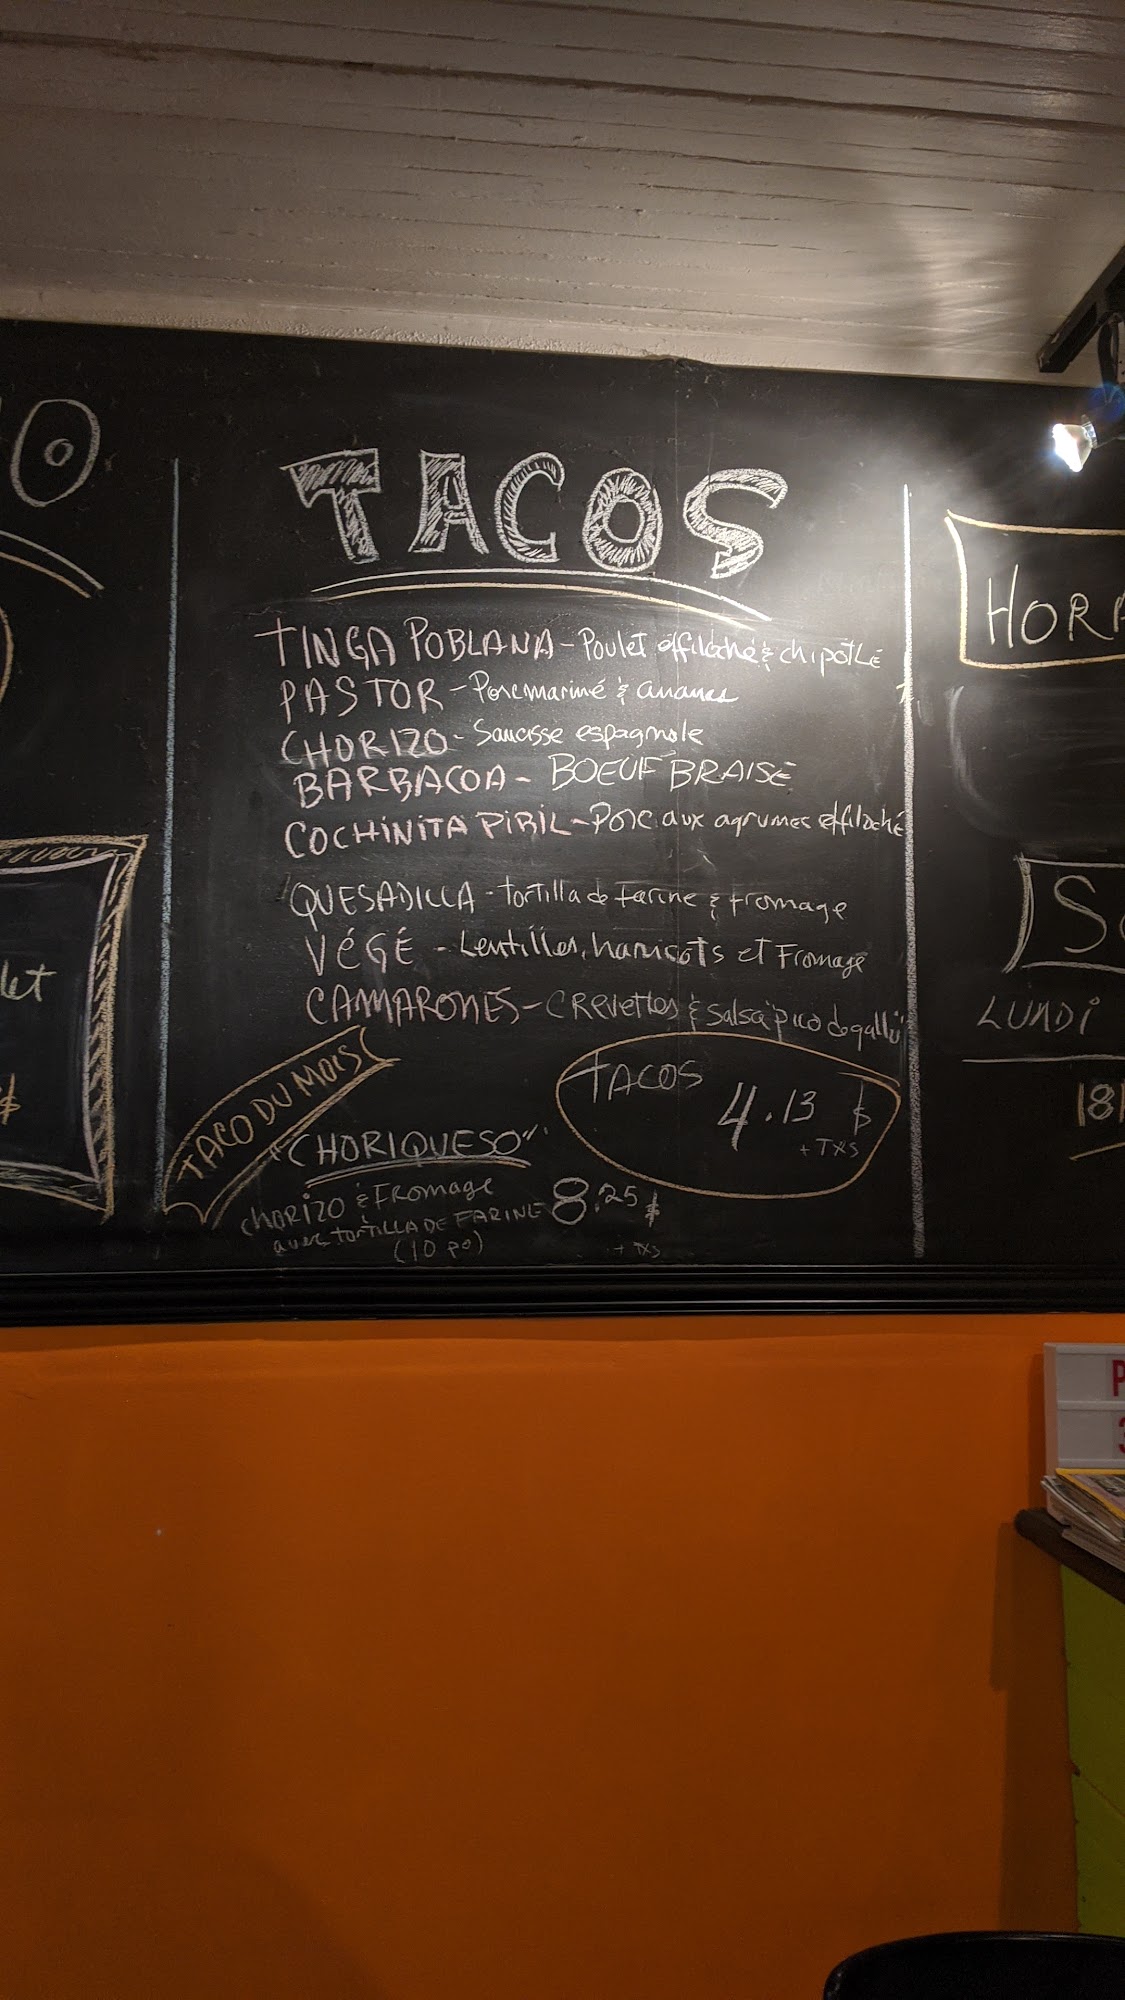 TACOS
TINGA POBLANA - Poulet effiloché & chipotLE
PASTOR - Porc mariné & ananas
CHORIZO - Saucisse espagnole
BARBACOA - BOEUF BRAISÉ
COCHINITA PIBIL - Porc aux agrumes effiloché
QUESADILLA - tortilla de farine & fromage
VÉGÉ - Lentilles, haricots et Fromage
CAMARONES - CREVETTES & Salsa "pico de gallo"
TACOS
4.13 $
+ TXS
TACO DU MOIS
"CHORIQUESO"
CHORIZO & FROMAGE
avec tortILLA DE FARINE
(10 po)
8.25 $
+ TXS
O
let
$
HORA
LUNDI